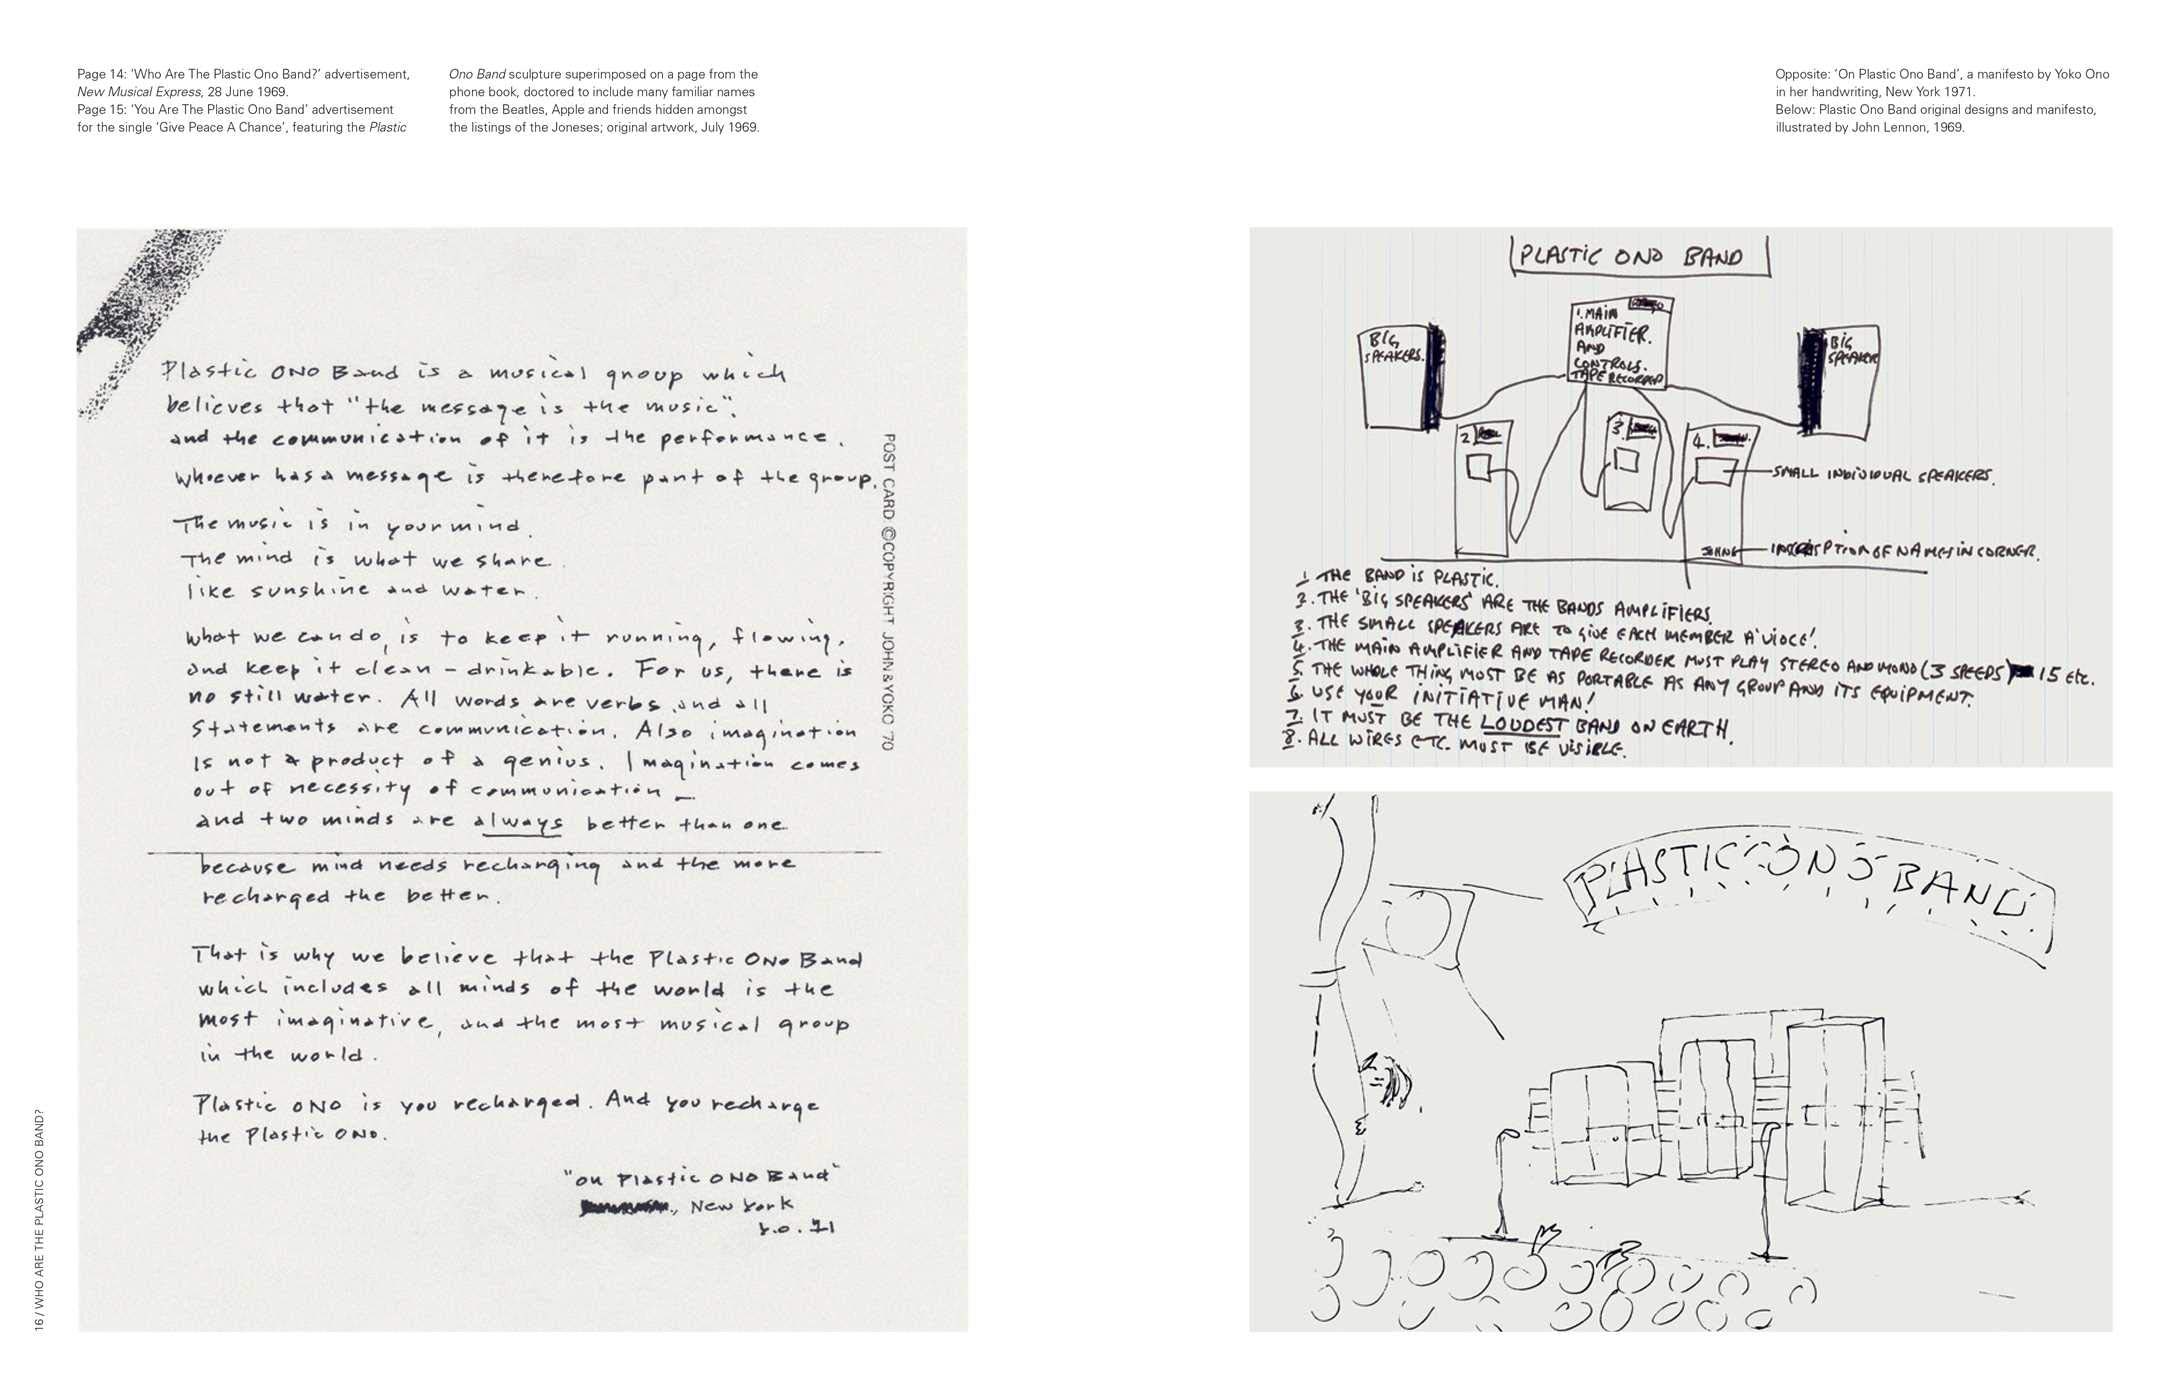 Page 14: ‘Who Are The Plastic Ono Band?’ advertisement,
New Musical Express, 28 June 1969.
Page 15: ‘You Are The Plastic Ono Band’ advertisement
for the single ‘Give Peace A Chance’, featuring the Plastic
Ono Band sculpture superimposed on a page from the
phone book, doctored to include many familiar names
from the Beatles, Apple and friends hidden amongst
the listings of the Joneses; original artwork, July 1969.
Opposite: ‘On Plastic Ono Band’, a manifesto by Yoko Ono
in her handwriting, New York 1971.
Below: Plastic Ono Band original designs and manifesto,
illustrated by John Lennon, 1969.
Plastic ONO Band is a musical group which
believes that "the message is the music".
and the communication of it is the performance.
Whoever has a message is therefore part of the group.
The music is in your mind.
The mind is what we share.
like sunshine and water.
What we can do, is to keep it running, flowing,
and keep it clean - drinkable. For us, there is
no still water. All words are verbs and all
Statements are communication. Also imagination
Is not a product of a genius. Imagination comes
out of necessity of communication —
and two minds are always better than one
because mind needs recharging and the more
recharged the better.
That is why we believe that the Plastic ONO Band
which includes all minds of the world is the
most imaginative, and the most musical group
in the world.
Plastic ONO is you recharged. And you recharge
the Plastic ONO.
"On Plastic ONO Band"
, New York
Y.O. 71
POST CARD ©COPYRIGHT JOHN & YOKO '70
16 / WHO ARE THE PLASTIC ONO BAND?
PLASTIC ONO BAND
BIG
SPEAKERS.
1. MAIN
AMPLIFIER.
AND
CONTROLS.
TAPE RECORDER
BIG
SPEAKER
2
3.
4.
SMALL INDIVIDUAL SPEAKERS.
INSCRIPTION OF NAMES IN CORNER.
1. THE BAND IS PLASTIC.
2. THE 'BIG SPEAKERS' ARE THE BANDS AMPLIFIERS.
3. THE SMALL SPEAKERS ARE TO GIVE EACH MEMBER A 'VIOCE'.
4. THE MAIN AMPLIFIER AND TAPE RECORDER MUST PLAY STEREO AND MONO (3 SPEEDS) 15 etc.
5. THE WHOLE THING MUST BE AS PORTABLE AS ANY GROUP AND ITS EQUIPMENT.
6. USE YOUR INITIATIVE MAN!
7. IT MUST BE THE LOUDEST BAND ON EARTH.
8. ALL WIRES ETC. MUST BE VISIBLE.
PLASTIC ONO BAND